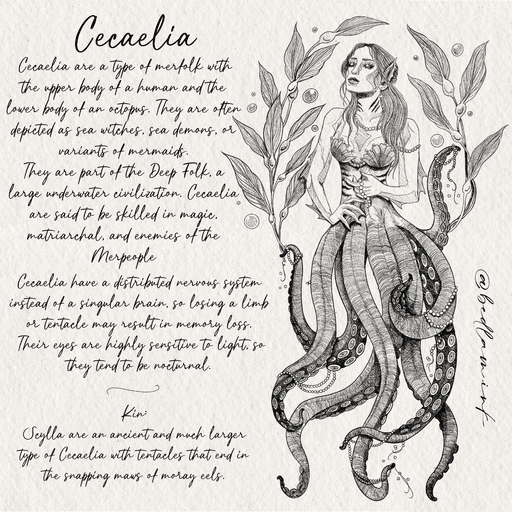 Cecaelia
Cecaelia are a type of merfolk with
the upper body of a human and the
lower body of an octopus. They are often
depicted as sea witches, sea demons, or
variants of mermaids.
They are part of the Deep Folk, a
large underwater civilization. Cecaelia
are said to be skilled in magic,
matriarchal, and enemies of the
Merpeople
Cecaelia have a distributed nervous system
instead of a singular brain, so losing a limb
or tentacle may result in memory loss.
Their eyes are highly sensitive to light, so
they tend to be nocturnal.
Kin:
Scylla are an ancient and much larger
type of Cecaelia with tentacles that end in
the snapping maws of moray eels.
@bedlamint